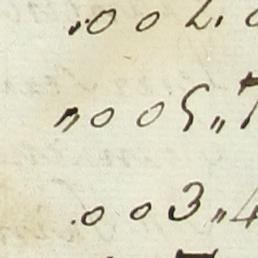 „00 2.0
„005„7
.003„4